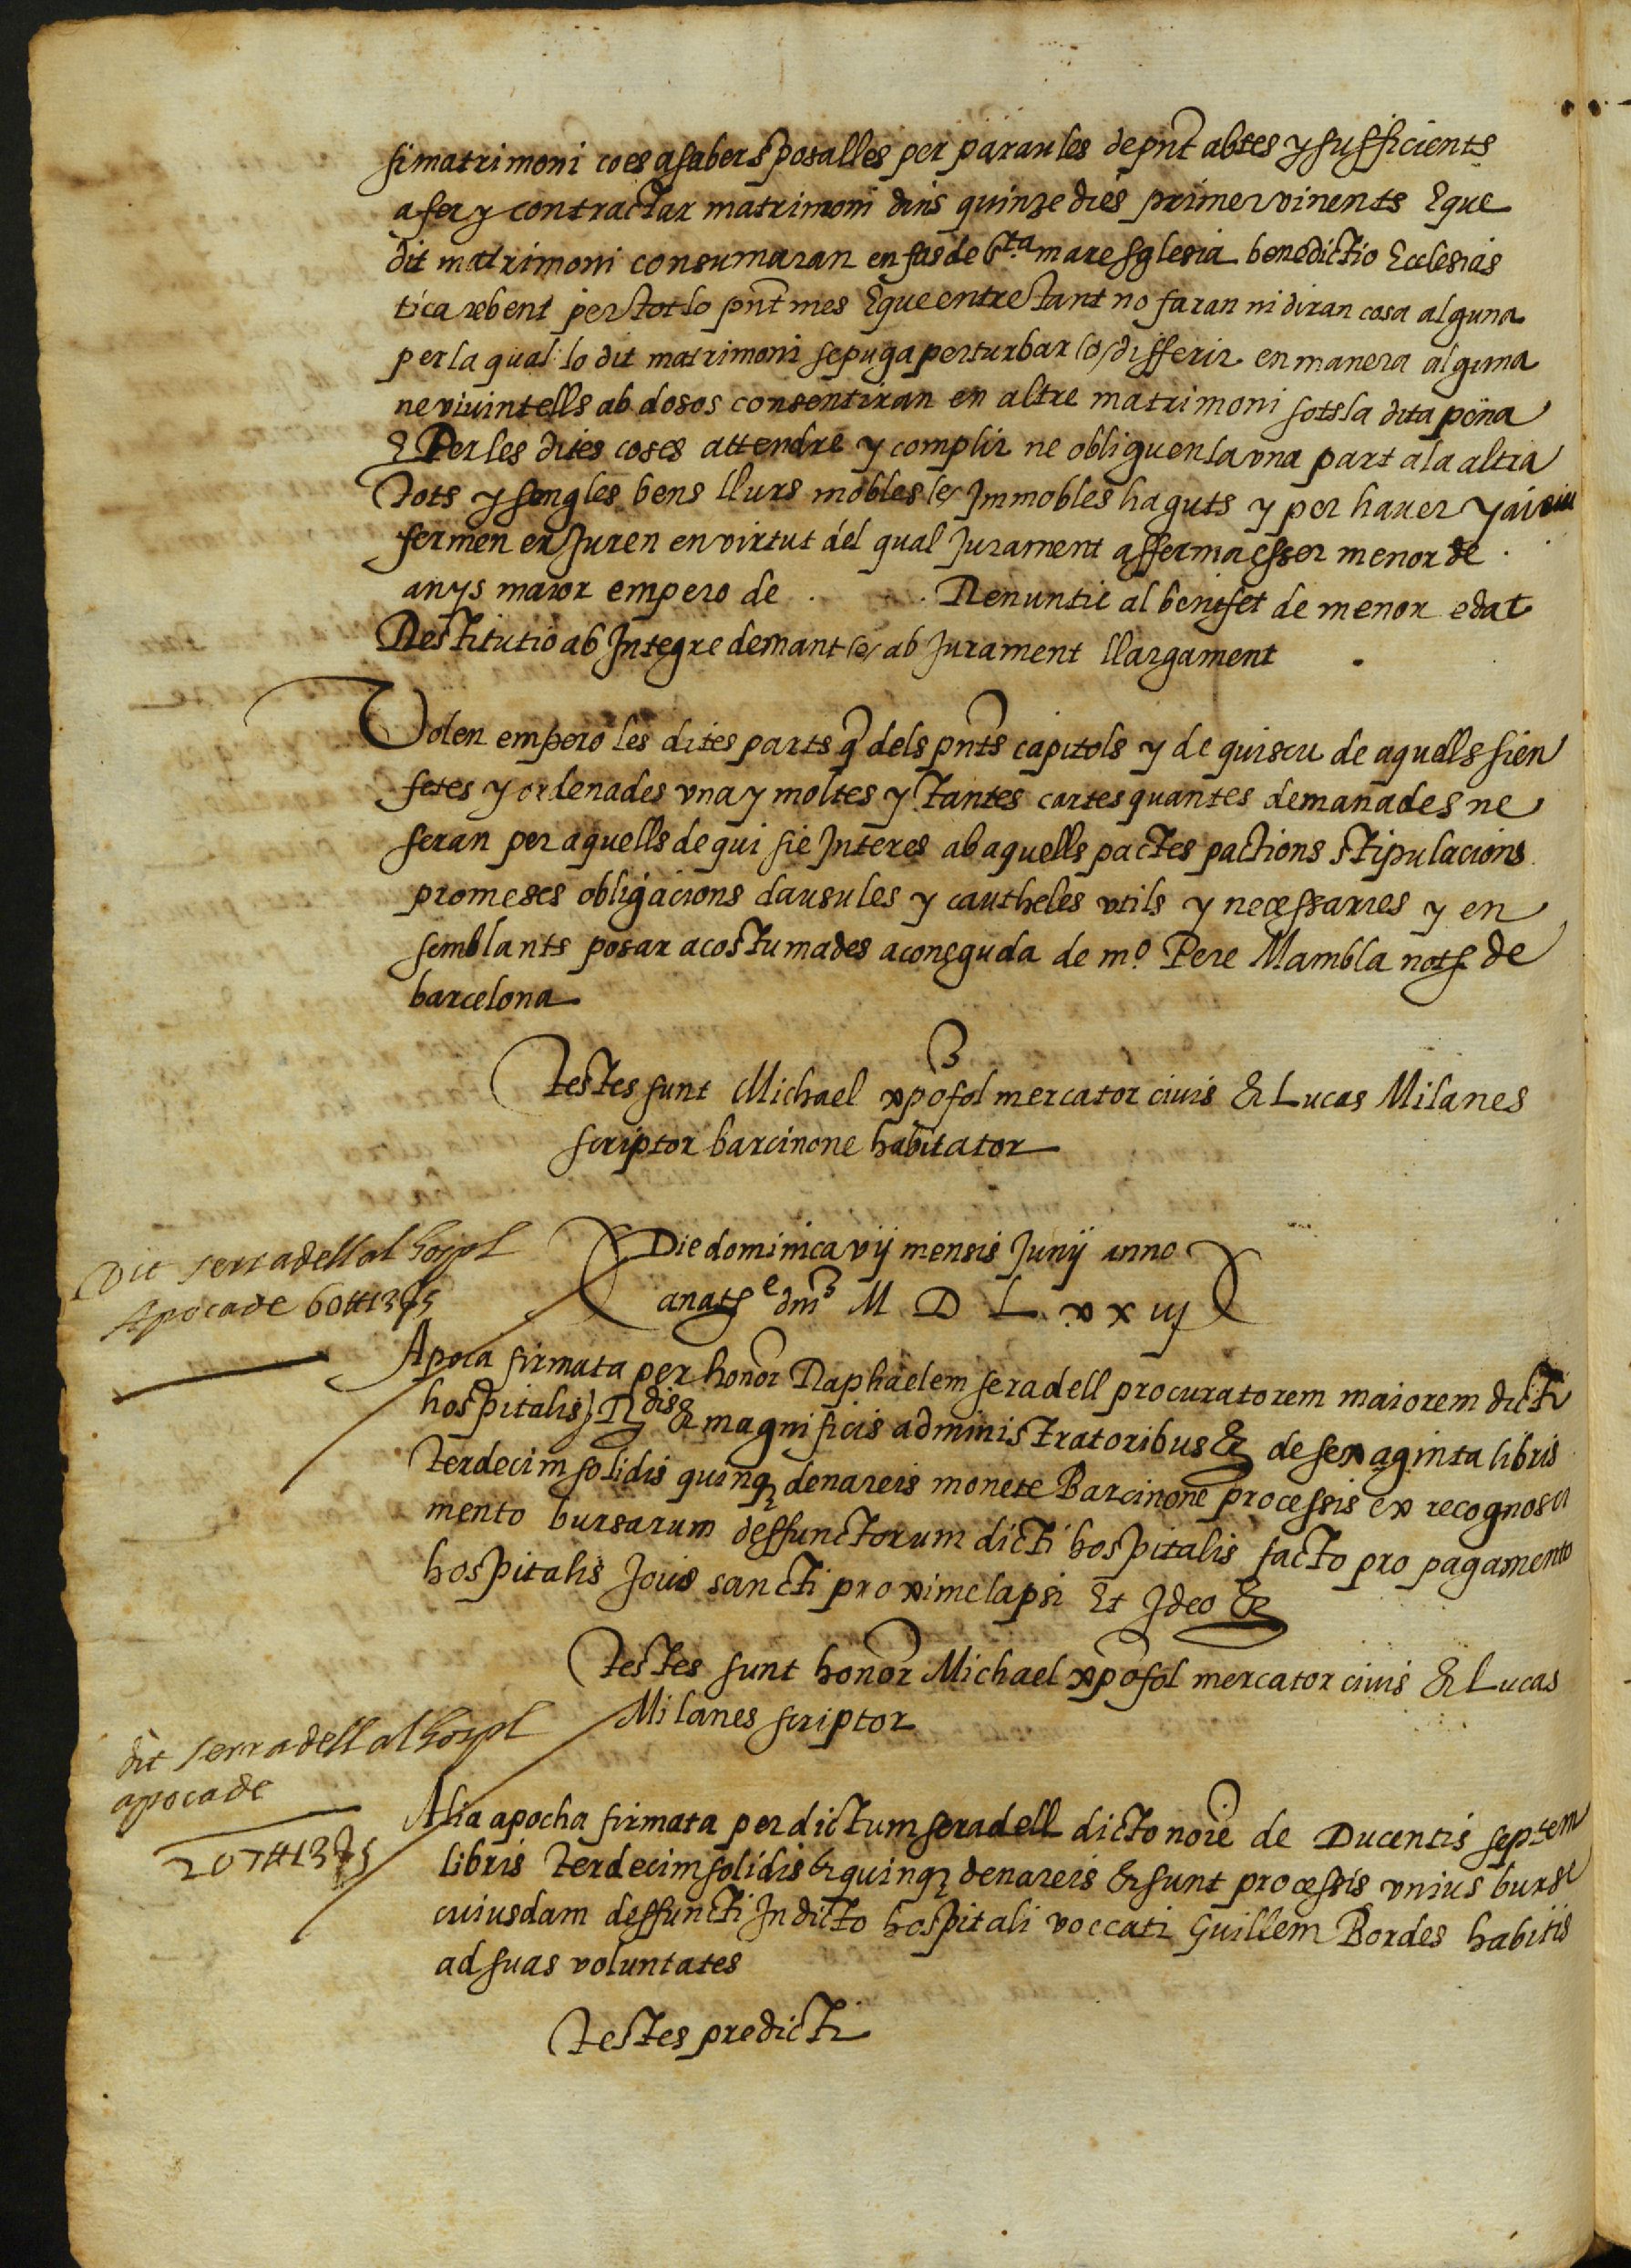 si matrimoni co es a saber sposalles per paraules de pnt abtes y sufficients
a fer y contractar matrimoni dins quinze dies primer vinents E que
dit matrimoni consumaran en fas de sta mare sglesia benedictio Ecclesias
tica rebent per tot lo pnt mes E que entretant no faran ni diran cosa alguna
per la qual lo dit matrimoni se puga perturbar o differir en manera alguna
ne viuint ells abdosos consentiran en altre matrimoni sots la dita pena
E Per les dites coses attendre y complir ne obliguen la una part a la altra
Tots y sengles bens llurs mobles e Immobles haguts y per hauer y aixiu
fermen e Juren en virtut del qual Jurament afferma esser menor de .
anys maior empero de . . Renuntie al benifet de menor edat
Restitutio ab Integre demant e ab Jurament llargament
Volen empero les dites parts q dels pnts capitols y de quiscu de aquells sien
fetes y ordenades una y moltes y tantes cartes quantes demanades ne
seran per aquells de qui sie Interes ab aquells pactes pactions stipulacions
promeses obligacions clausules y cautheles utils y necessaries y en
semblants posar acostumades a coneguda de mo. Pere Mambla not de
barcelona
Testes sunt Michael xpofol mercator ciuis & Lucas Milanes
scriptor barcinone habitator
Die dominica vij mensis Junij anno
a nat e dni M D L x x iij
Dit serradell al hospl
Apoca de 60 ₶ 13 ß 5
Apoca firmata per honor Raphaelem seradell procuratorem maiorem dicti
hospitalis R dis & magnificis administratoribus & de sexaginta libris
terdecim solidis quinq denareis monete Barcinone processis ex recognosci
mento bursarum deffunctorum dicti hospitalis facto pro pagamento
hospitalis Jouis sancti proxime lapsi Et Ideo &
Testes sunt honor Michael xpofol mercator ciuis & Lucas
Milanes scriptor
dit serradell al hospl
apoca de
207 ₶ 13 ß 5
Alia apocha firmata per dictum seradell dicto noie de Ducentis septem
libris terdecim solidis & quinq denareis & sunt processis unius burse
cuiusdam deffuncti In dicto hospitali voccati Guillem Bordes habitis
ad suas voluntates
Testes predicti